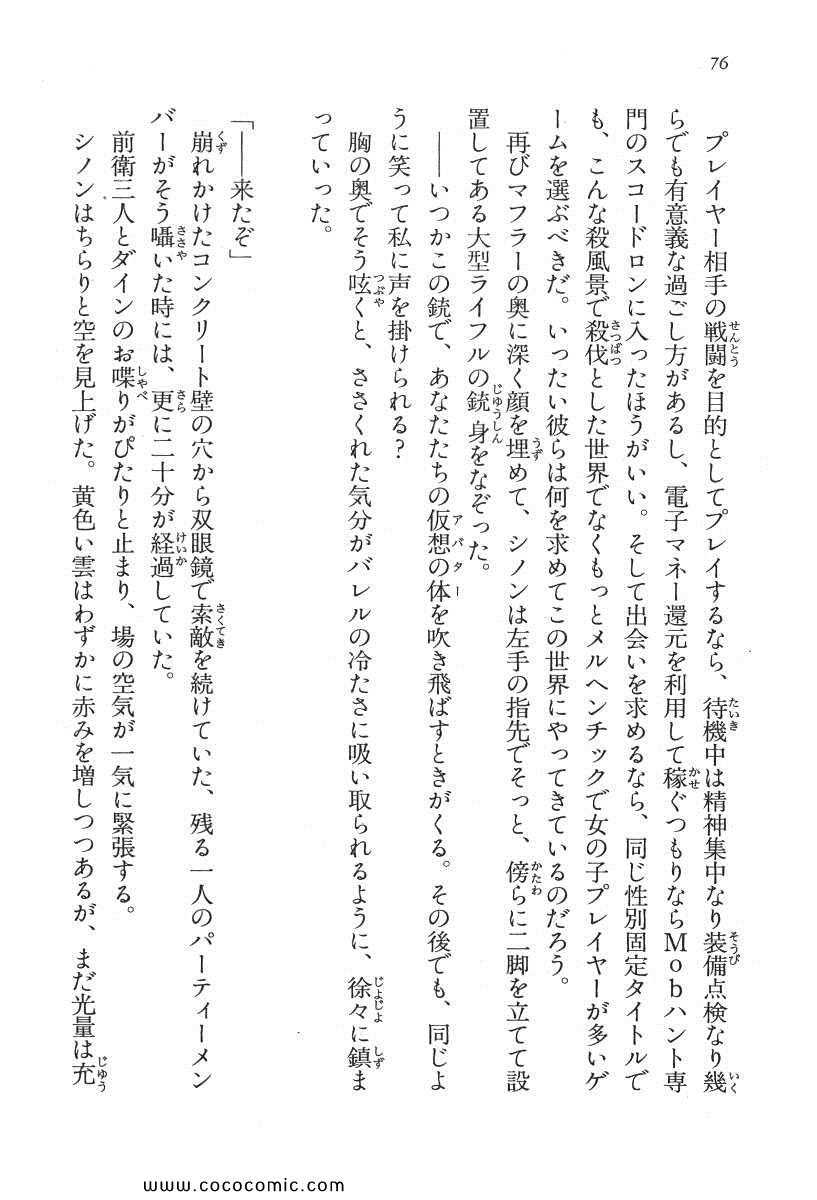 76
プレイヤー相手の戦闘を目的としてプレイするなら、待機中は精神集中なり装備点検なり幾
らでも有意義な過ごし方があるし、電子マネー還元を利用して稼ぐつもりならMobハント専
門のスコードロンに入ったほうがいい。そして出会いを求めるなら、同じ性別固定タイトルで
も、こんな殺風景で殺伐とした世界でなくもっとメルヘンチックで女の子プレイヤーが多いゲ
ームを選ぶべきだ。いったい彼らは何を求めてこの世界にやってきているのだろう。
再びマフラーの奥に深く顔を埋めて、シノンは左手の指先でそっと、傍らに二脚を立てて設
置してある大型ライフルの銃身をなぞった。
――いつかこの銃で、あなたたちの仮想の体を吹き飛ばすときがくる。その後でも、同じよ
うに笑って私に声を掛けられる?
胸の奥でそう呟くと、ささくれた気分がバレルの冷たさに吸い取られるように、徐々に鎮ま
っていった。
「――来たぞ」
崩れかけたコンクリート壁の穴から双眼鏡で索敵を続けていた、残る一人のパーティーメン
バーがそう囁いた時には、更に二十分が経過していた。
前衛三人とダインのお喋りがぴたりと止まり、場の空気が一気に緊張する。
シノンはちらりと空を見上げた。黄色い雲はわずかに赤みを増しつつあるが、まだ光量は充
www.cococomic.com